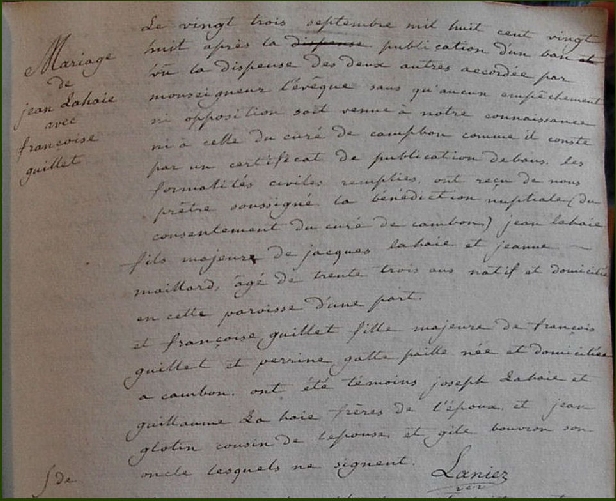 Mariage
de
jean Lahaie
avec
françoise
guillet
Le vingt trois septembre mil huit cent vingt
huit après la dispense publication d'un ban et
vu la dispense des deux autres accordée par
monseigneur l'évêque sans qu'aucun empêchement
ni opposition soit venue à notre connaissance
ni à celle du curé de campbon comme il conste
par un certificat de publication de bans. les
formalités civiles remplies, ont reçu de nous
prêtre soussigné la bénédiction nuptiale (du
consentement du curé de cambon) jean lahaie
fils majeure de jacques lahaie et jeanne
maillard, âgé de trente trois ans natif et domicilié
en cette paroisse d'une part.
et françoise guillet fille majeure de françois
guillet et perrine gatte paille née et domiciliée
a cambon. ont été témoins joseph Lahaie et
guillaume La haie frères de l'époux, et jean
glotin cousin de l'epouse, et gile bouvron son
oncle lesquels ne signent. Laniez
de